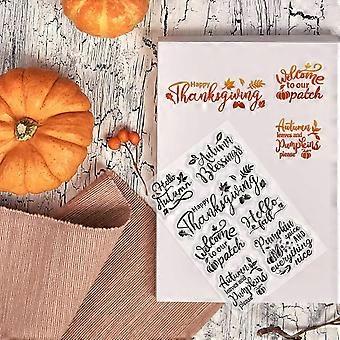 Happy
Thanksgiving
Welcome
to our
patch
Autumn
leaves and
Pumpkins
please
Hello
Autumn
Autumn
Blessings
Happy
Thanksgiving
Hello
fall
Welcome
to our
patch
Pumpkin
everything
nice
Autumn
leaves and
Pumpkins
please